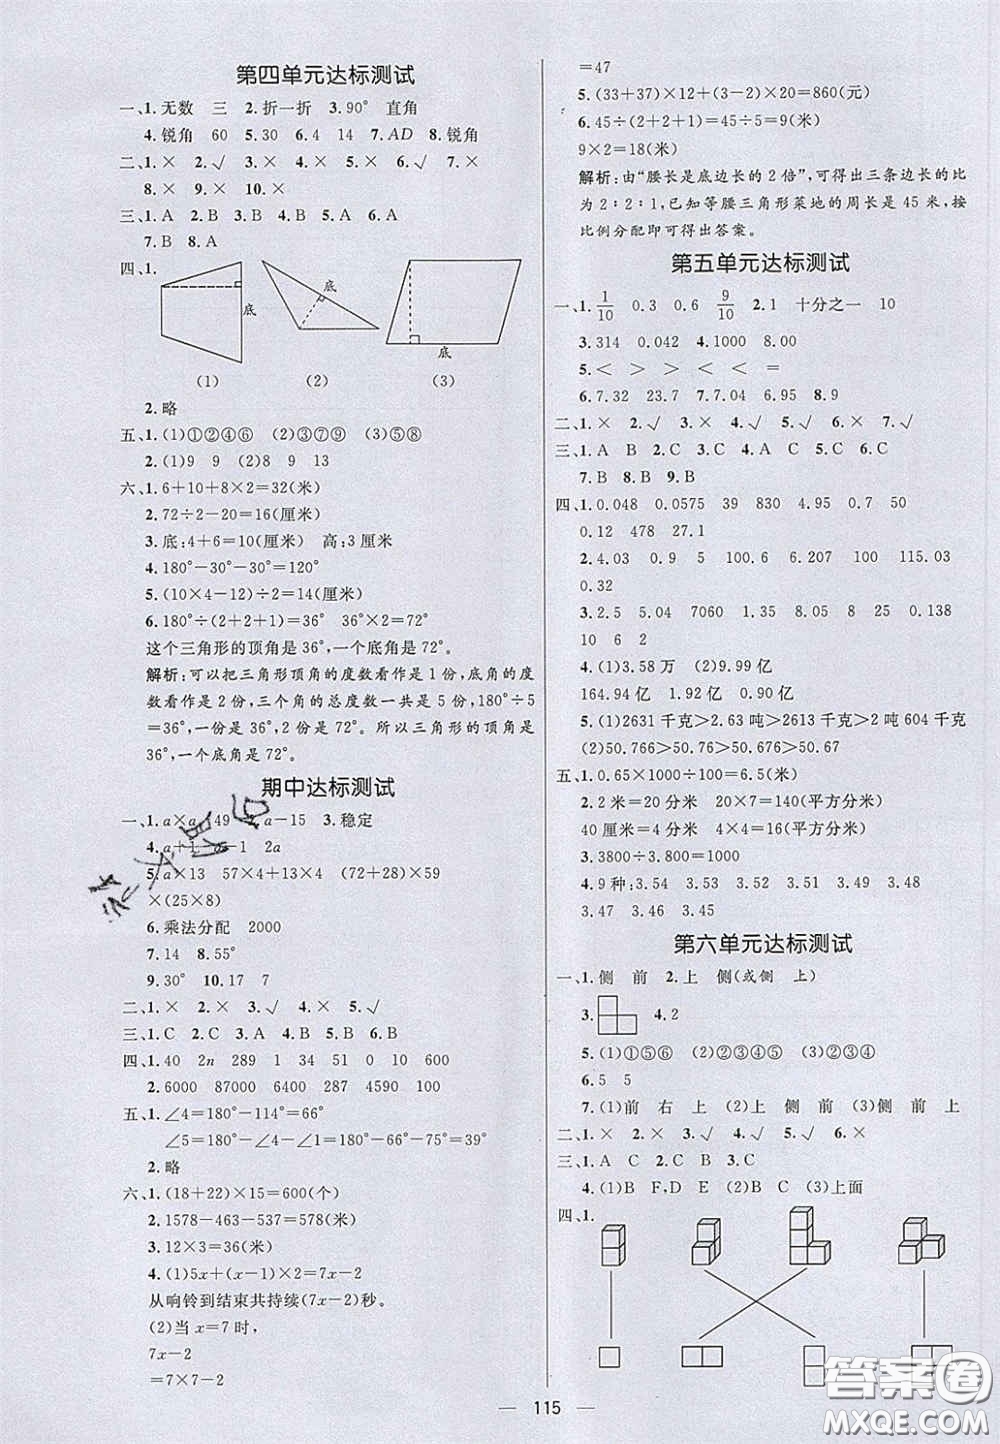 第四单元达标测试
一、1.无数 三 2.折一折 3.90° 直角
4.锐角 60 5.30 6.4 14 7.AD 8.锐角
二、1.× 2.√ 3.× 4.× 5.× 6.√ 7.×
8.× 9.× 10.×
三、1.A 2.B 3.B 4.B 5.A 6.A
7.B 8.A
四、1.
底
底
底
(1) (2) (3)
2.略
五、1.(1)①②④⑥ (2)③⑦⑨ (3)⑤⑧
2.(1)9 9 (2)8 9 13
六、1.6+10+8×2=32(米)
2.72÷2-20=16(厘米)
3.底:4+6=10(厘米) 高:3厘米
4.180°-30°-30°=120°
5.(10×4-12)÷2=14(厘米)
6.180°÷(2+2+1)=36° 36°×2=72°
这个三角形的顶角是36°,一个底角是72°。
解析:可以把三角形顶角的度数看作是1份,底角的度
数看作是2份,三个角的总度数一共是5份,180°÷5
=36°,一份是36°,2份是72°。所以三角形的顶角是
36°,一个底角是72°。
期中达标测试
一、1.a×a 49 2.a-15 3.稳定
4.a+1 a-1 2a
5.a×13 57×4+13×4 (72+28)×59
×(25×8)
6.乘法分配 2000
7.14 8.55°
9.30° 10.17 7
二、1.× 2.× 3.√ 4.× 5.√
三、1.C 2.C 3.A 4.B 5.B 6.C
四、1.40 2n 289 1 34 51 0 10 600
2.6000 87000 6400 287 4590 100
五、1.∠4=180°-114°=66°
∠5=180°-∠4-∠1=180°-66°-75°=39°
2.略
六、1.(18+22)×15=600(个)
2.1578-463-537=578(米)
3.12×3=36(米)
4.(1)5x+(x-1)×2=7x-2
从响铃到结束共持续(7x-2)秒。
(2)当x=7时,
7x-2
=7×7-2
=47
5.(33+37)×12+(3-2)×20=860(元)
6.45÷(2+2+1)=45÷5=9(米)
9×2=18(米)
解析:由“腰长是底边长的2倍”,可得出三条边长的比
为2∶2∶1,已知等腰三角形菜地的周长是45米,按
比例分配即可得出答案。
第五单元达标测试
一、1.1/10 0.3 0.6 9/10 2.1 十分之一 10
3.314 0.042 4.1000 8.00
5.< > < < =
6.7.32 23.7 7.7.04 6.95 8.9
二、1.× 2.√ 3.× 4.√ 5.√ 6.× 7.√
三、1.A B 2.C 3.C 4.A C 5.C 6.A
7.B 8.B 9.B
四、1.0.048 0.0575 39 830 4.95 0.7 50
0.12 478 27.1
2.4.03 0.9 5 100.6 6.207 100 115.03
0.32
3.2.5 5.04 7060 1.35 8.05 8 25 0.138
10 6 2
4.(1)3.58万 (2)9.99亿
164.94亿 1.92亿 0.90亿
5.(1)2631千克>2.63吨>2613千克>2吨604千克
(2)50.766>50.76>50.676>50.67
五、1.0.65×1000÷100=6.5(千米)
2.2米=20分米 20×7=140(平方分米)
40厘米=4分米 4×4=16(平方分米)
3.3800÷1000=3.8(米)
4.9种:3.54 3.53 3.52 3.51 3.49 3.48
3.47 3.46 3.45
第六单元达标测试
一、1.侧 前 2.上 侧(或侧 上)
3. 4.2
5.(1)①⑤⑥ (2)②③④⑤ (3)②③④
6.5 5
7.(1)前 右 上 (2)上 侧 前 (3)侧 前 上
二、1.× 2.× 3.√ 4.√ 5.√ 6.×
三、1.A C 2.B 3.C
4.(1)B F,D E (2)B (3)上面
四、1.
115
答案圈
MXQE.COM